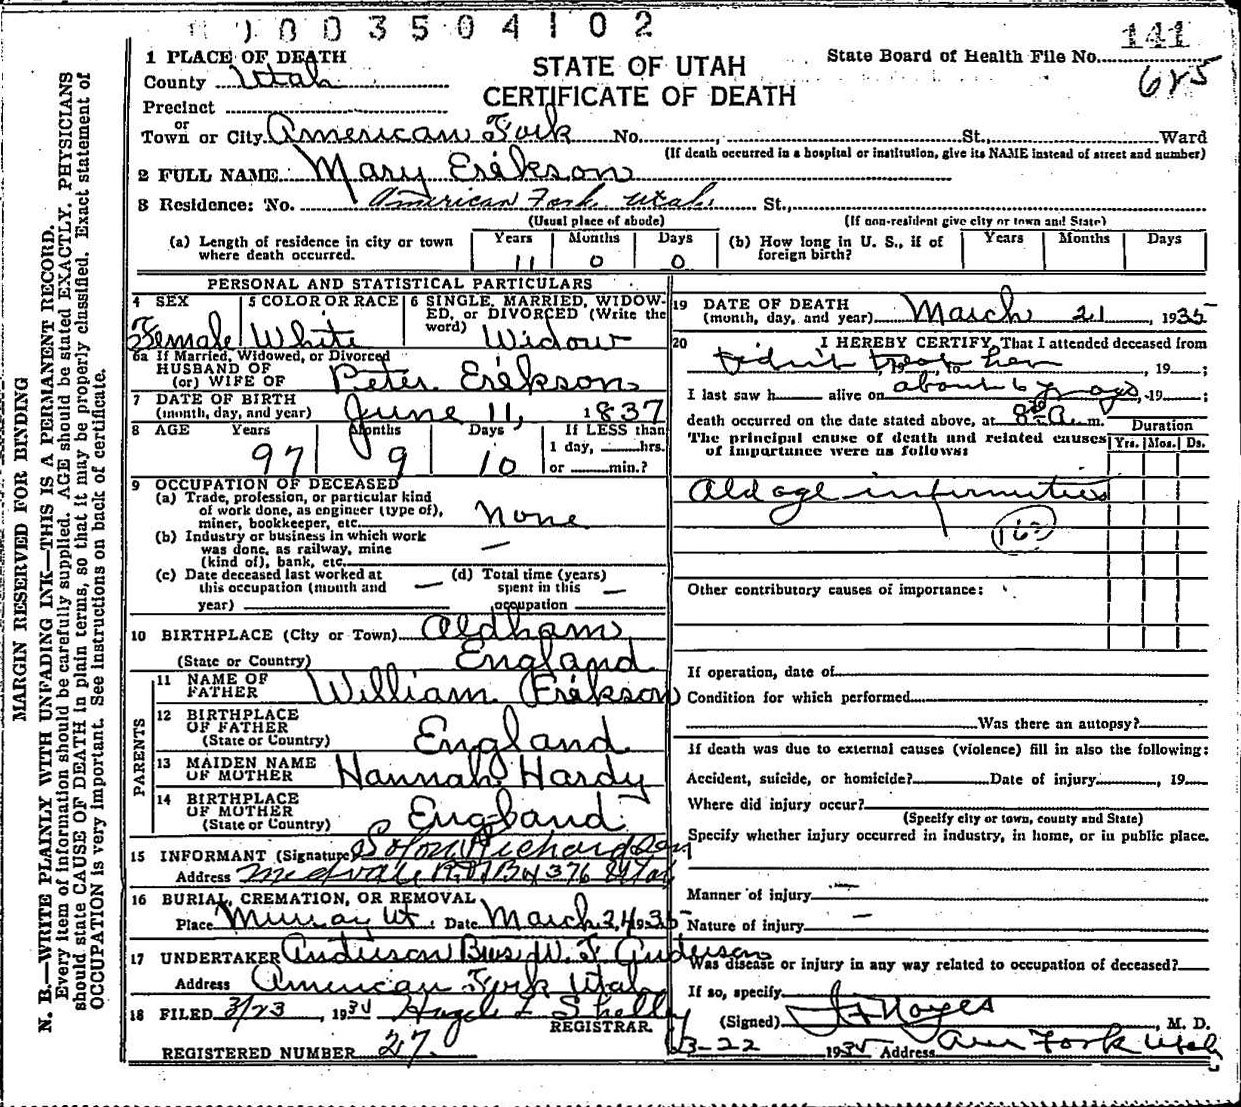 0003504102
1 PLACE OF DEATH
County Utah
Precinct
or
Town or City American Fork No. St., Ward
(If death occurred in a hospital or institution, give its NAME instead of street and number)
STATE OF UTAH
CERTIFICATE OF DEATH
State Board of Health File No. 141
625
2 FULL NAME Mary Erikson
3 Residence: No. American Fork Utah. St.,
(Usual place of abode) (If non-resident give city or town and State)
(a) Length of residence in city or town where death occurred. Years 11 Months 0 Days 0
(b) How long in U. S., if of foreign birth? Years Months Days
PERSONAL AND STATISTICAL PARTICULARS
4 SEX Female
5 COLOR OR RACE White
6 SINGLE, MARRIED, WIDOWED, or DIVORCED (Write the word) Widow
6a If Married, Widowed, or Divorced
HUSBAND OF
(or) WIFE OF Peter Erikson
7 DATE OF BIRTH
(month, day, and year) June 11, 1837
8 AGE Years 97 Months 9 Days 10 If LESS than 1 day, hrs. or min.?
9 OCCUPATION OF DECEASED
(a) Trade, profession, or particular kind
of work done, as engineer (type of),
miner, bookkeeper, etc. None
(b) Industry or business in which work
was done, as railway, mine
(kind of), bank, etc. —
(c) Date deceased last worked at
this occupation (month and
year) —
(d) Total time (years)
spent in this
occupation —
10 BIRTHPLACE (City or Town) Oldham
(State or Country) England
PARENTS
11 NAME OF
FATHER William Erikson
12 BIRTHPLACE
OF FATHER
(State or Country) England
13 MAIDEN NAME
OF MOTHER Hannah Hardy
14 BIRTHPLACE
OF MOTHER
(State or Country) England
15 INFORMANT (Signature) Solon Richardson
Address Midvale Box 376 Utah
16 BURIAL, CREMATION, OR REMOVAL
Place Murray Ut. Date March 24 1935
17 UNDERTAKER Anderson Bros W. F. Anderson
Address American Fork Utah
18 FILED 3/23, 1935 Shelley
REGISTRAR.
REGISTERED NUMBER 27.
19 DATE OF DEATH
(month, day, and year) March 21 1935
20 I HEREBY CERTIFY, That I attended deceased from
didn't treat her, 19 to , 19 ;
I last saw h alive on about 6 y ago, 19 ;
death occurred on the date stated above, at 8 A. m.
The principal cause of death and related causes
of importance were as follows:
Duration
Yrs. Mos. Ds.
Old age infirmities
162
Other contributory causes of importance:
If operation, date of
Condition for which performed
Was there an autopsy?
If death was due to external causes (violence) fill in also the following:
Accident, suicide, or homicide? Date of injury , 19
Where did injury occur?
(Specify city or town, county and State)
Specify whether injury occurred in industry, in home, or in public place.
Manner of injury —
Nature of injury —
Was disease or injury in any way related to occupation of deceased?
If so, specify
(Signed) Noyes, M. D.
3-22 1935 Address Am Fork Utah
MARGIN RESERVED FOR BINDING
N. B.—WRITE PLAINLY WITH UNFADING INK—THIS IS A PERMANENT RECORD.
Every item of information should be carefully supplied. AGE should be stated EXACTLY. PHYSICIANS
should state CAUSE OF DEATH in plain terms, so that it may be properly classified. Exact statement of
OCCUPATION is very important. See instructions on back of certificate.